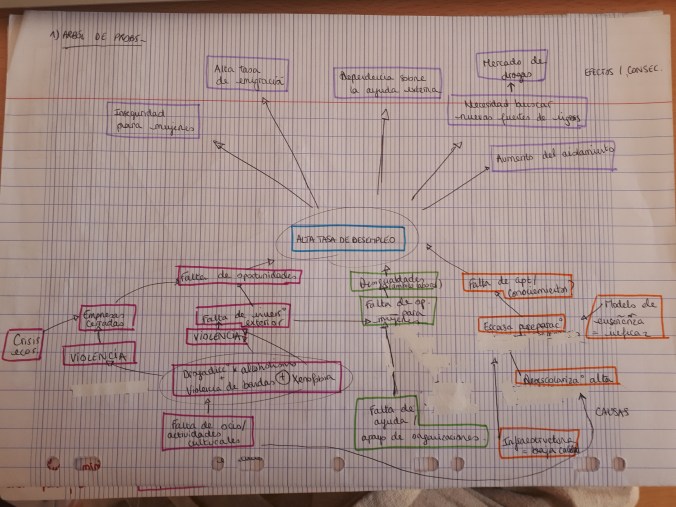 1) ARBOL DE PROBS.
EFECTOS / CONSEC.
Alta tasa
de emigración
Dependencia sobre
la ayuda externa
Mercado de
drogas
Inseguridad
para mujeres
Necesidad buscar
nuevas fuentes de
Aumento del aislamiento
ALTA TASA DE DESEMPLEO
Falta de oportunidades
Desigualdades
Falta de apt/
conocimientos
Empresas
cerradas
Falta de invers°
exterior
Falta de op.
para
mujeres
Escasa preparac°
Modelo de
enseñanza
= ineficaz
Crisis
econ.
VIOLENCIA
VIOLENCIA
Drogadicc + alcoholismo
Violencia de bandas + Xenofobia
Desescolarizac° alta
Falta de ocio/
actividades
culturales
Falta de
ayuda/
apoyo de organizaciones
CAUSAS
Infraestructura
= baja calidad